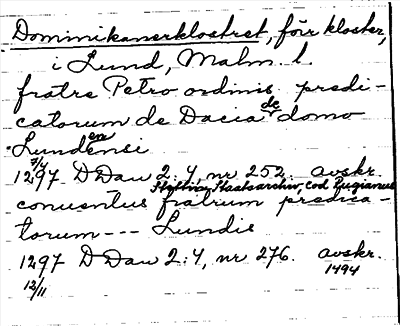 Dominikanerklostret, förr kloster,
i Lund, Malm. l.
fratre Petro ordinis predi-
catorum de Dacia de domo
Lundensi en
7/4
1297 D Dan 2:4, nr 252. avskr.
Stettiner Staatsarchiv, Cod. Rugianus
conuentus fratrum predica-
torum --- Lundis
1297 D Dan 2:4, nr 276. avskr.
12/11 1494